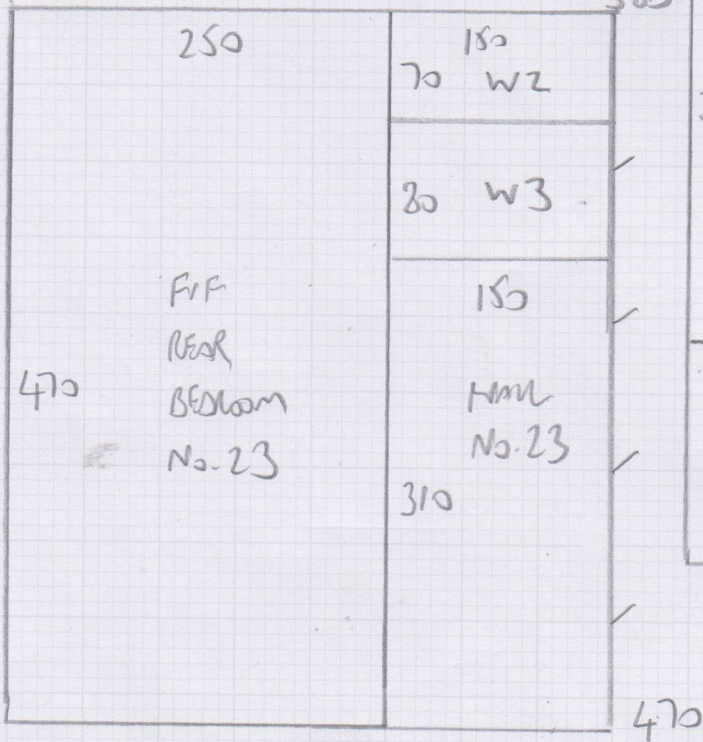 250
150
70 W2
80 W3
150
F/F
REAR
BEDROOM
No. 23
470
HALL
No. 23
310
470